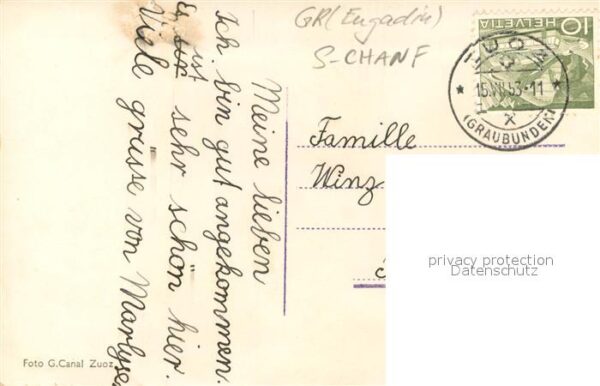 GR (Engadin)
S-CHANF
HELVETIA
10
ZUOZ
15.VII.53-11
(GRAUBÜNDEN)
Meine lieben
Ich bin gut angekommen.
Es ist sehr schön hier.
Viele grüsse von Marlyse
Familie
Winz
privacy protection
Datenschutz
Foto G.Canal Zuoz